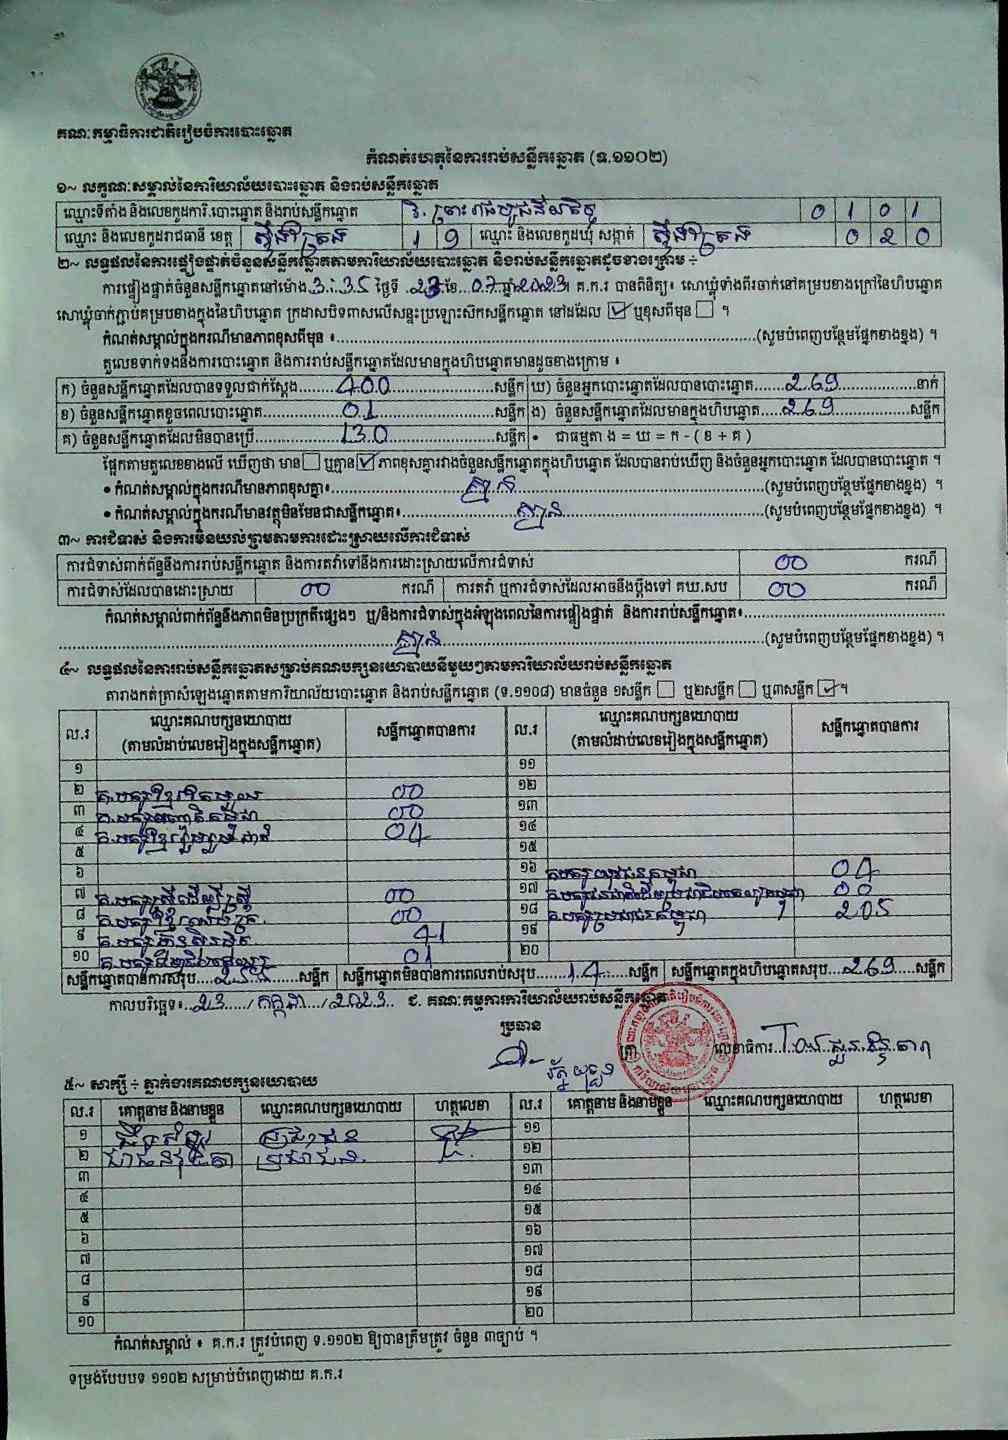 គណៈកម្មាធិការជាតិរៀបចំការបោះឆ្នោត
កំណត់ហេតុនៃការរាប់សន្លឹកឆ្នោត (ទ.១១០២)
១~ លក្ខណៈសម្គាល់នៃការិយាល័យបោះឆ្នោត និងរាប់សន្លឹកឆ្នោត
ឈ្មោះទីតាំង និងលេខកូដការិ.បោះឆ្នោត និងរាប់សន្លឹកឆ្នោត វិ. ព្រះរាជបូជនីយកិច្ច 0 1 0 1
ឈ្មោះ និងលេខកូដរាជធានី ខេត្ត ស្ទឹងត្រែង 1 9 ឈ្មោះ និងលេខកូដឃុំ សង្កាត់ ស្ទឹងត្រែង 0 2 0
២~ លទ្ធផលនៃការផ្ទៀងផ្ទាត់ចំនួនសន្លឹកឆ្នោតតាមការិយាល័យបោះឆ្នោត និងរាប់សន្លឹកឆ្នោតដូចខាងក្រោម ÷
ការផ្ទៀងផ្ទាត់ចំនួនសន្លឹកឆ្នោតនៅម៉ោង 3:35 ថ្ងៃទី 23 ខែ 07 ឆ្នាំ 2023។ គ.ក.រ បានពិនិត្យ៖ សោឃ្មុំទាំងពីរចាក់នៅគម្របខាងក្រៅនៃហិបឆ្នោត
សោឃ្មុំចាក់ភ្ជាប់គម្របខាងក្នុងនៃហិបឆ្នោត ក្រដាសបិទពាសលើសន្លះប្រឡោះសិកសន្លឹកឆ្នោត នៅដដែល ☑ ឬខុសពីមុន ☐ ។
កំណត់សម្គាល់ក្នុងករណីមានភាពខុសពីមុន ៖ (សូមបំពេញបន្ថែមផ្នែកខាងខ្នង) ។
តួលេខទាក់ទងនឹងការបោះឆ្នោត និងការរាប់សន្លឹកឆ្នោតដែលមានក្នុងហិបឆ្នោតមានដូចខាងក្រោម ៖
ក) ចំនួនសន្លឹកឆ្នោតដែលបានទទួលជាក់ស្តែង 400 សន្លឹក ឃ) ចំនួនអ្នកបោះឆ្នោតដែលបានបោះឆ្នោត 269 នាក់
ខ) ចំនួនសន្លឹកឆ្នោតខូចពេលបោះឆ្នោត 01 សន្លឹក ង) ចំនួនសន្លឹកឆ្នោតដែលមានក្នុងហិបឆ្នោត 269 សន្លឹក
គ) ចំនួនសន្លឹកឆ្នោតដែលមិនបានប្រើ 130 សន្លឹក • ជាធម្មតា ង = ឃ = ក - ( ខ + គ )
ផ្អែកតាមតួលេខខាងលើ ឃើញថា មាន ☐ ឬគ្មាន ☑ ភាពខុសគ្នារវាងចំនួនសន្លឹកឆ្នោតក្នុងហិបឆ្នោត ដែលបានរាប់ឃើញ និងចំនួនអ្នកបោះឆ្នោត ដែលបានបោះឆ្នោត ។
• កំណត់សម្គាល់ក្នុងករណីមានភាពខុសគ្នា៖ គ្មាន (សូមបំពេញបន្ថែមផ្នែកខាងខ្នង) ។
• កំណត់សម្គាល់ក្នុងករណីមានវត្ថុមិនមែនជាសន្លឹកឆ្នោត៖ គ្មាន (សូមបំពេញបន្ថែមផ្នែកខាងខ្នង) ។
៣~ ការជំទាស់ និងការមិនយល់ព្រមតាមការដោះស្រាយលើការជំទាស់
ការជំទាស់ពាក់ព័ន្ធនឹងការរាប់សន្លឹកឆ្នោត និងការតវ៉ាទៅនឹងការដោះស្រាយលើការជំទាស់ 00 ករណី
ការជំទាស់ដែលបានដោះស្រាយ 00 ករណី ការតវ៉ា ឬការជំទាស់ដែលអាចនឹងប្តឹងទៅ គឃ.សប 00 ករណី
កំណត់សម្គាល់ពាក់ព័ន្ធនឹងភាពមិនប្រក្រតីផ្សេងៗ ឬ/និងការជំទាស់ក្នុងអំឡុងពេលនៃការផ្ទៀងផ្ទាត់ និងការរាប់សន្លឹកឆ្នោត៖
គ្មាន (សូមបំពេញបន្ថែមផ្នែកខាងខ្នង) ។
៤~ លទ្ធផលនៃការរាប់សន្លឹកឆ្នោតសម្រាប់គណបក្សនយោបាយនីមួយៗតាមការិយាល័យរាប់សន្លឹកឆ្នោត
តារាងកត់ត្រាសំឡេងឆ្នោតតាមការិយាល័យបោះឆ្នោត និងរាប់សន្លឹកឆ្នោត (ទ.១១០៨) មានចំនួន ១សន្លឹក ☐ ឬ២សន្លឹក ☐ ឬ៣សន្លឹក ☑ ។
ល.រ ឈ្មោះគណបក្សនយោបាយ (តាមលំដាប់លេខរៀងក្នុងសន្លឹកឆ្នោត) សន្លឹកឆ្នោតបានការ ល.រ ឈ្មោះគណបក្សនយោបាយ (តាមលំដាប់លេខរៀងក្នុងសន្លឹកឆ្នោត) សន្លឹកឆ្នោតបានការ
១ ១១
២ គ.បក្ស 00 ១២
៣ គ.បក្ស 00 ១៣
៤ គ.បក្ស 04 ១៤
៥ ១៥
៦ ១៦ គ.បក្ស 04
៧ គ.បក្សស្ត្រីដើម្បីស្ត្រី 00 ១៧ គ.បក្ស 00
៨ គ.បក្ស 00 ១៨ គ.បក្សប្រជាជនកម្ពុជា 205
៩ គ.បក្ស 41 ១៩
១០ គ.បក្ស 01 ២០
សន្លឹកឆ្នោតបានការសរុប 255 សន្លឹក សន្លឹកឆ្នោតមិនបានការពេលរាប់សរុប 14 សន្លឹក សន្លឹកឆ្នោតក្នុងហិបឆ្នោតសរុប 269 សន្លឹក
កាលបរិច្ឆេទ៖ 23 / កក្កដា / 2023 ជ. គណៈកម្មការការិយាល័យរាប់សន្លឹកឆ្នោត
ប្រធាន
ត្រា លេខាធិការ
៥~ សាក្សី ÷ ភ្នាក់ងារគណបក្សនយោបាយ
ល.រ គោត្តនាម និងនាមខ្លួន ឈ្មោះគណបក្សនយោបាយ ហត្ថលេខា ល.រ គោត្តនាម និងនាមខ្លួន ឈ្មោះគណបក្សនយោបាយ ហត្ថលេខា
១ ប្រជាជន ១១
២ ប្រជាជន ១២
៣ ១៣
៤ ១៤
៥ ១៥
៦ ១៦
៧ ១៧
៨ ១៨
៩ ១៩
១០ ២០
កំណត់សម្គាល់ ៖ គ.ក.រ ត្រូវបំពេញ ទ.១១០២ ឱ្យបានត្រឹមត្រូវ ចំនួន ៣ច្បាប់ ។
ទម្រង់បែបបទ ១១០២ សម្រាប់បំពេញដោយ គ.ក.រ